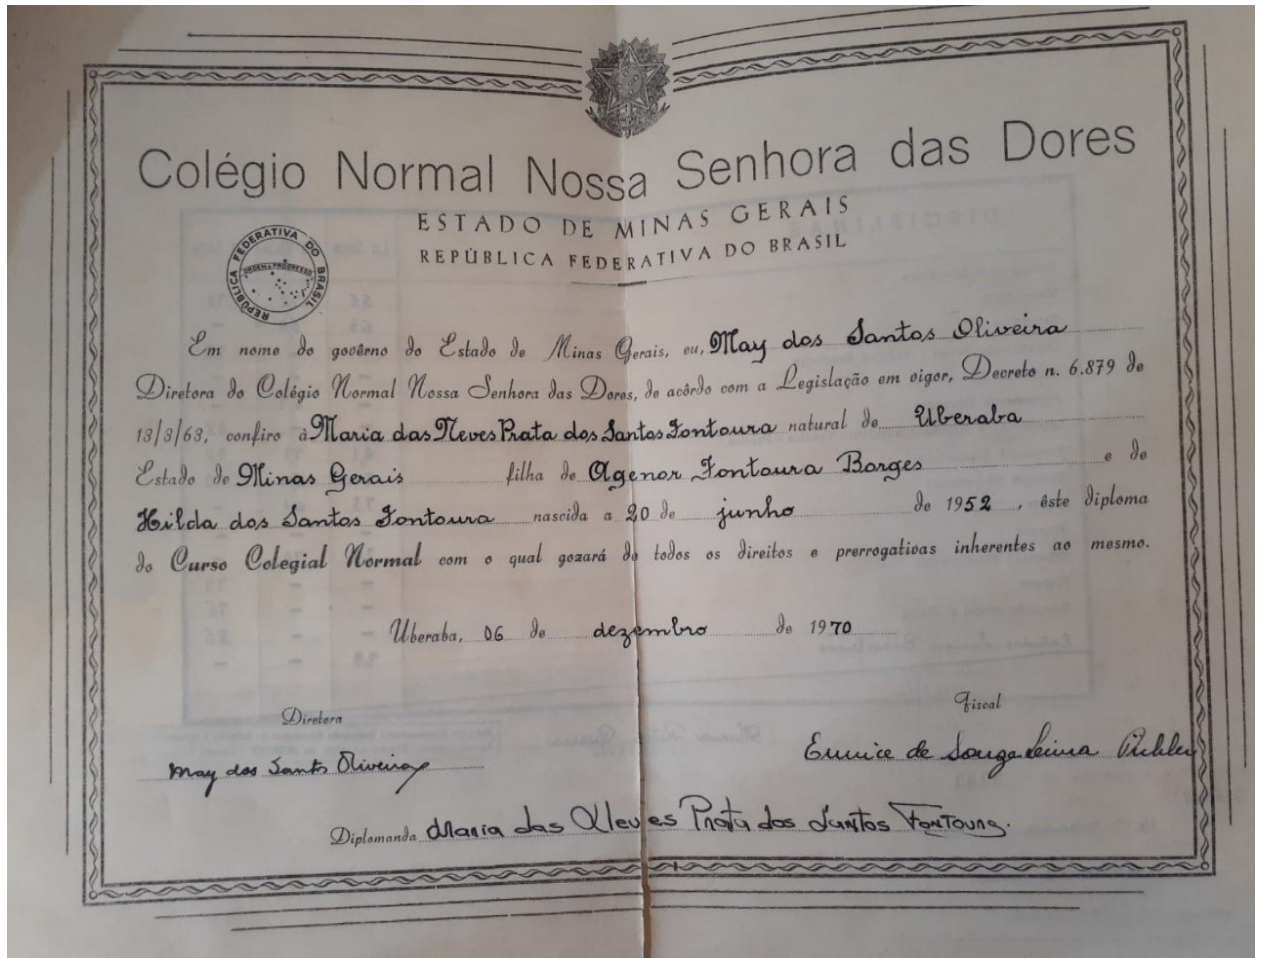 Colégio Normal Nossa Senhora das Dores
ESTADO DE MINAS GERAIS
REPÚBLICA FEDERATIVA DO BRASIL
REPÚBLICA FEDERATIVA DO BRASIL
ORDEM E PROGRESSO
Em nome do govêrno do Estado de Minas Gerais, eu, May dos Santos Oliveira
Diretora do Colégio Normal Nossa Senhora das Dores, de acôrdo com a Legislação em vigor, Decreto n. 6.879 de
13/3/63, confiro à Maria das Neves Prata dos Santos Fontoura natural de Uberaba
Estado de Minas Gerais filha de Agenor Fontoura Borges e de
Hilda dos Santos Fontoura nascida a 20 de junho de 1952, êste diploma
do Curso Colegial Normal com o qual gozará de todos os direitos e prerrogativas inherentes ao mesmo.
Uberaba, 06 de dezembro de 1970
Diretora
Fiscal
May dos Santos Oliveira
Eunice de Souza
Diplomanda Maria das Neves Prata dos Santos Fontoura.